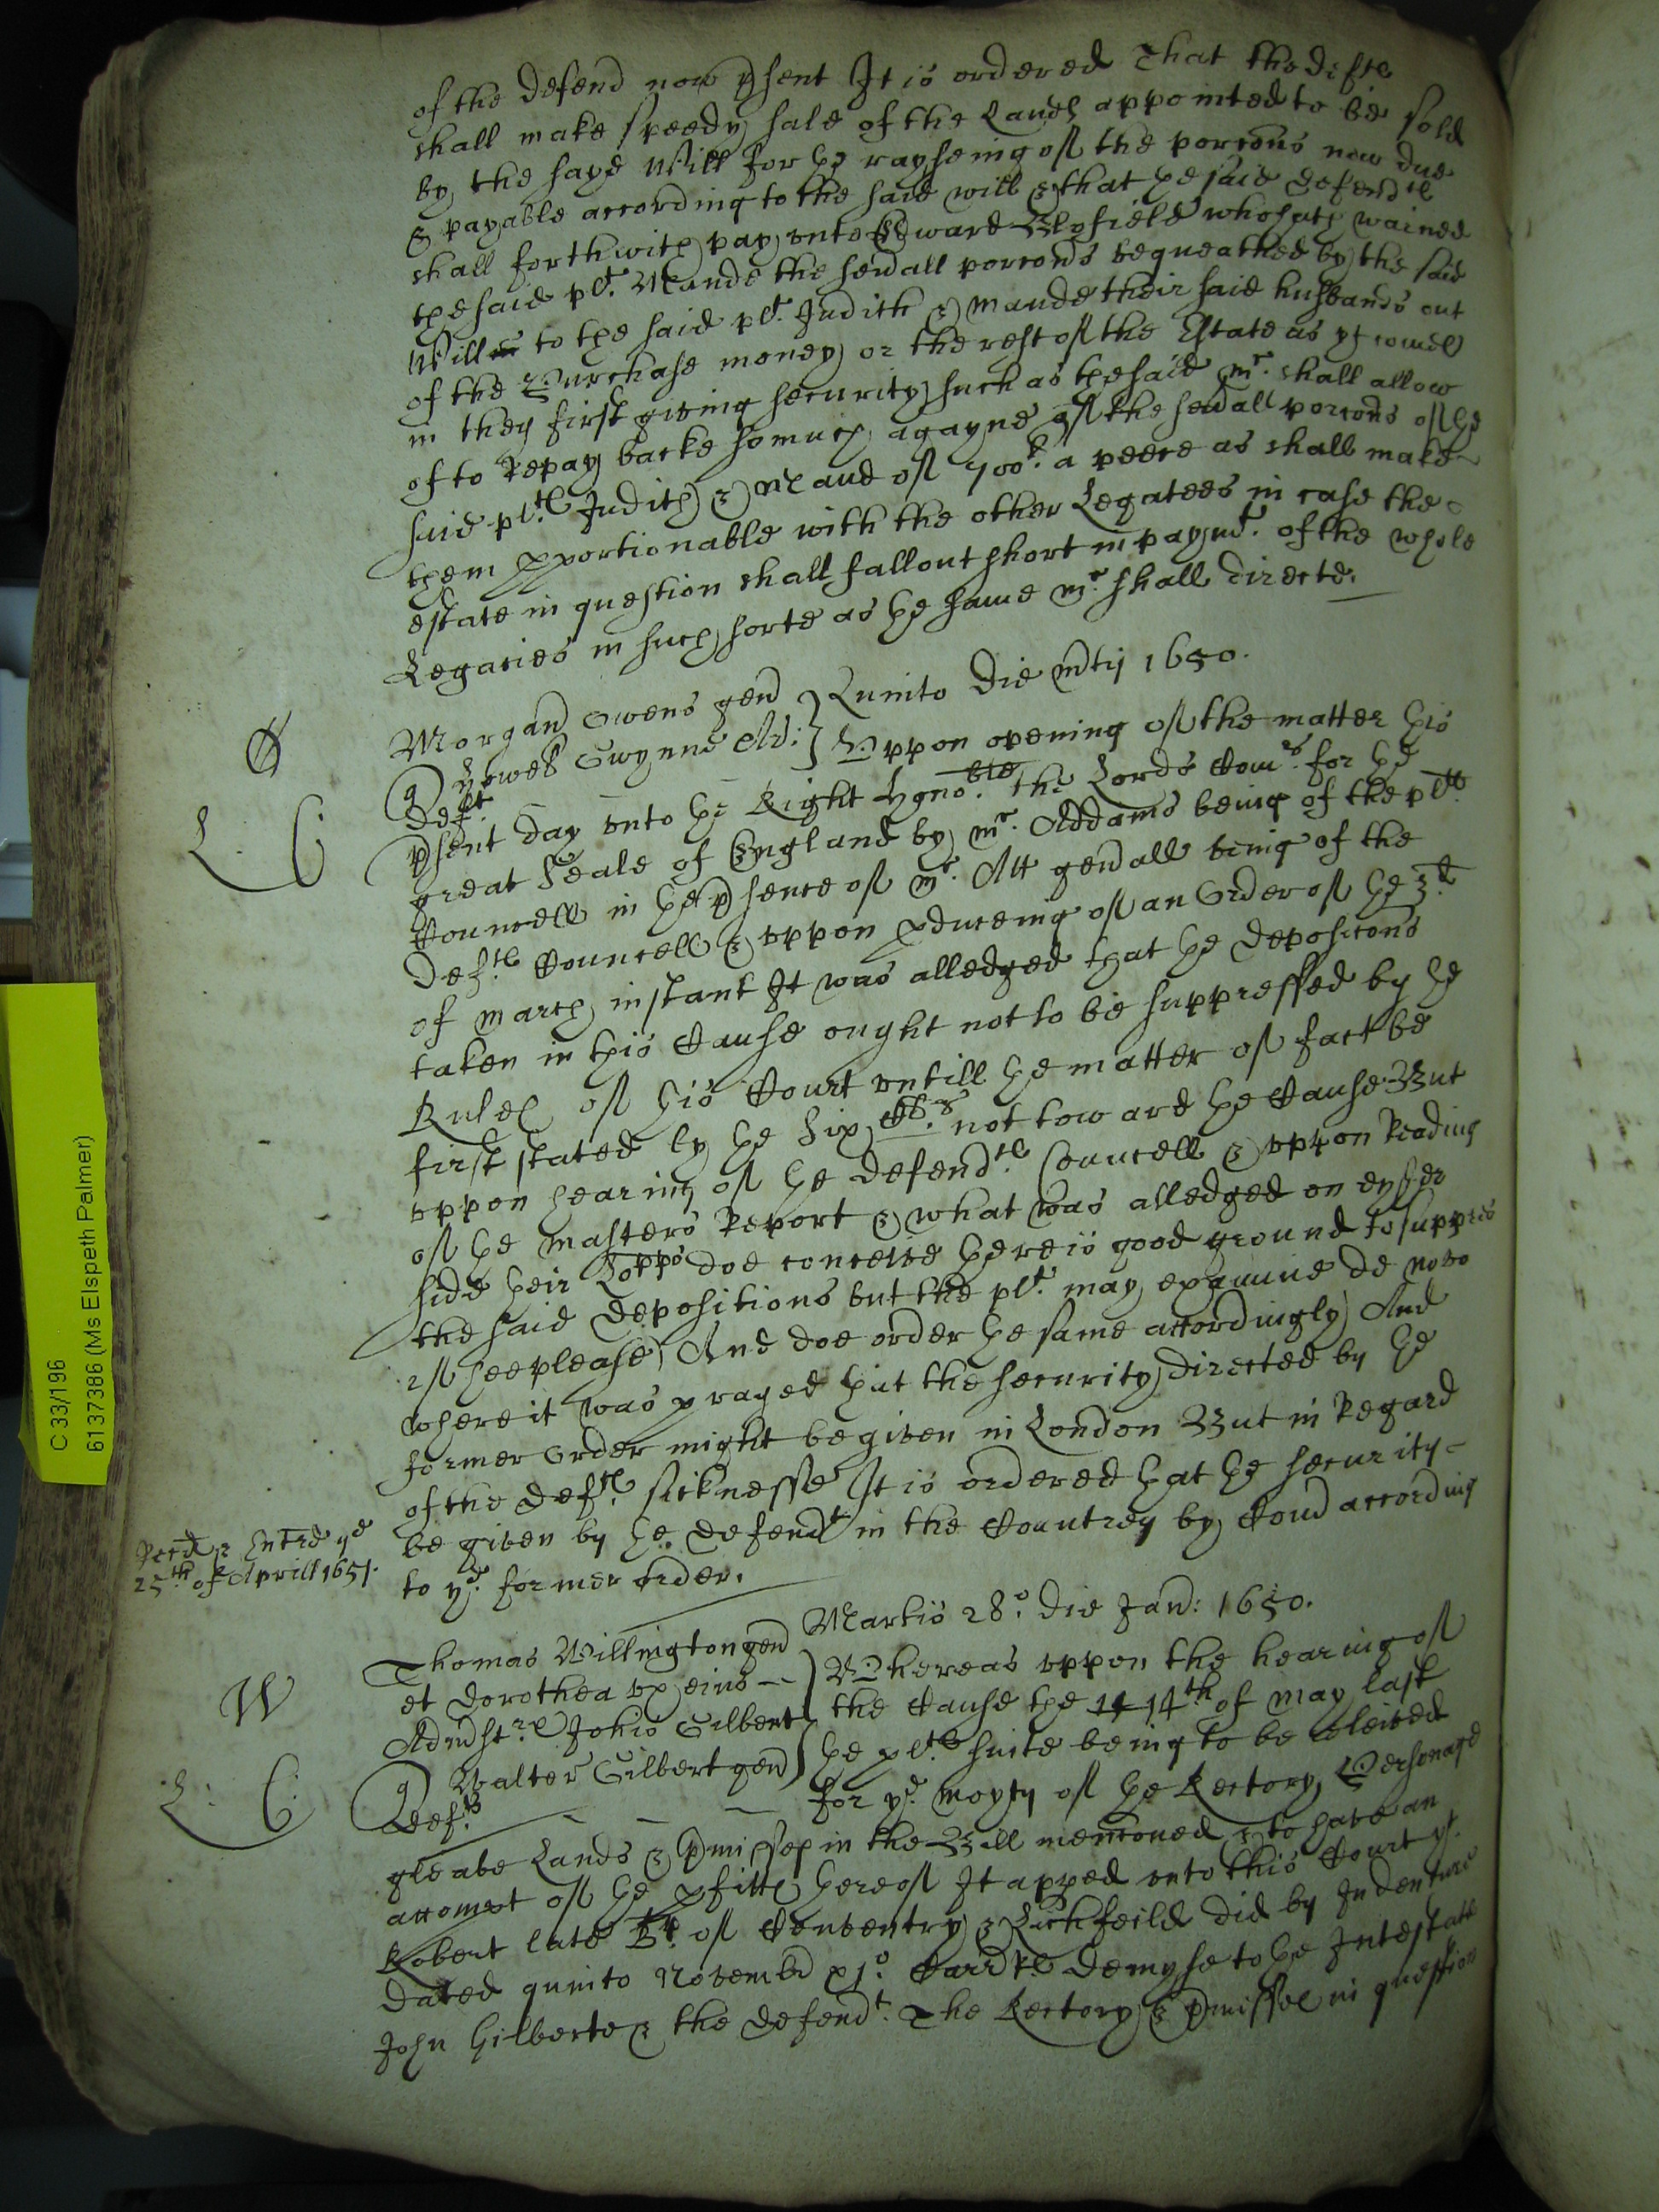 of the Defend now psent It is ordered That the deftes
shall make speedy sale of the Landes appointed to be sold
by the sayd Will for ye raysheing of the porcons now due
& payable according to the said will & that the said defendtes
shall forthwith pay unto Edward Blofield who hath
the said plt. Maude the seuall porcons bequeathed by the said
Will to the said plt. Judith & Maude their said husbands out
of the Purchase money or the rest of the Estate as yt comes
in they first giving security such as the said mr. shall allow
of to Repay backe somuch agayne of the seuall porcons of ye
said pltes Judith & Maud of 700l. a peece as shall make
them pportionable with the other Legatees in case the
estate in question shall fall out short in paymt. of the whole
Legacies in such sorte as ye same mr. shall directe.
Morgan Owens gen
Quinto Die mtij 1650.
Gwynne
Deft.
Uppon opening of the matter this
psent day unto ye Right Hono.ble the Lords Comrs. for ye
great Seale of England by mr. Addams being of the plts.
Councell in ye psence of mr. Att genall being of the
Deftes Councell & uppon pduceing of an Order of ye 3d
of march instant It was alledged that ye depositons
taken in this Cause ought not to be suppressed by ye
Rules of this Court untill ye matter of fact be
first stated by ye Six not toward ye Cause But
uppon hearing of ye defendtes Councell & uppon Reading
of ye masters Report & what was alledged on eyther
side their Lopps doe conceive there is good ground to suppres
the said Depositions but the plt. may examine de novo
if hee please And doe order ye same accordingly And
where it was prayed that the security directed by ye
former Order might be given in London But in Regard
of the Deftes. sicknesse It is ordered that ye security
be given by ye. defendt in the Countrey by Comd according
to ye. former order.
25th of Aprill 1651.
Martis 28o. die Jan: 1650.
Thomas Willington gen
et Dorothea ux eius
Johis Gilbert
Walter Gilbert gen
Defts
W
L: C:
L: C:
Whereas uppon the hearing of
the Cause the 14 14th of may last
ye pltes suite being to be releived
for ye. moyty of ye Rectory Personage
gleabe Lands & pmisses in the Bill menconed & to have an
accompt of ye pfitts thereof It apped unto this Court yt.
Robert late Bp. of Coventry & Lichfeild did by Indenture
Dated quinto Novembr xjo. demyse to ye Intestate
John Gilberte & the defendt. The Rectory & pmisses in question